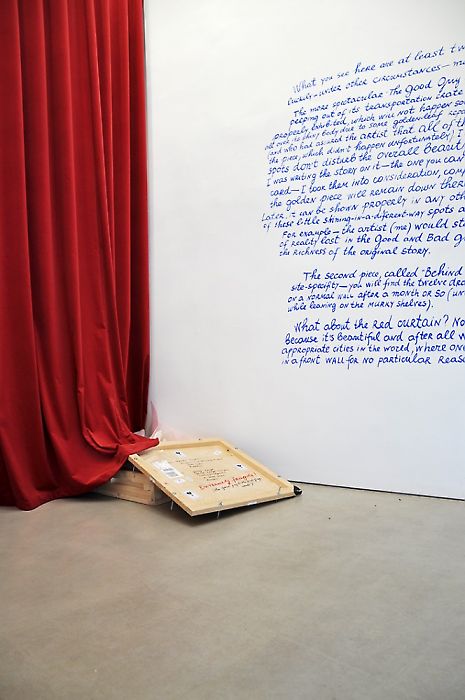 What you see here are at least tw
under other circumstances— mu
The more spectacular The Good Guy
peeping out of its transportation crate
properly exhibited, which will not happen so
all over its shiny body due to some golden-leaf repa
(and who had assured the artist that all of th
the piece, which didn't happen unfortunately) I
spots don't disturb the overall beauty
I was writing the story on it—the one you can
card—I took them into consideration, comp
the golden piece will remain down there
Later, it can be shown properly in any oth
of these little shining-in-a-different-way spots a
For example—the artist (me) would st
of reality lost in the Good and Bad G
the richness of the original story.
The second piece, called "Behind
site-specific—you will find the twelve dra
on a normal wall after a month or so (un
while leaning on the murky shelves).
What about the red curtain? No
Because it's beautiful and after all w
appropriate cities in the world, where one
in a front wall for no particular reaso
Extremely fragile!